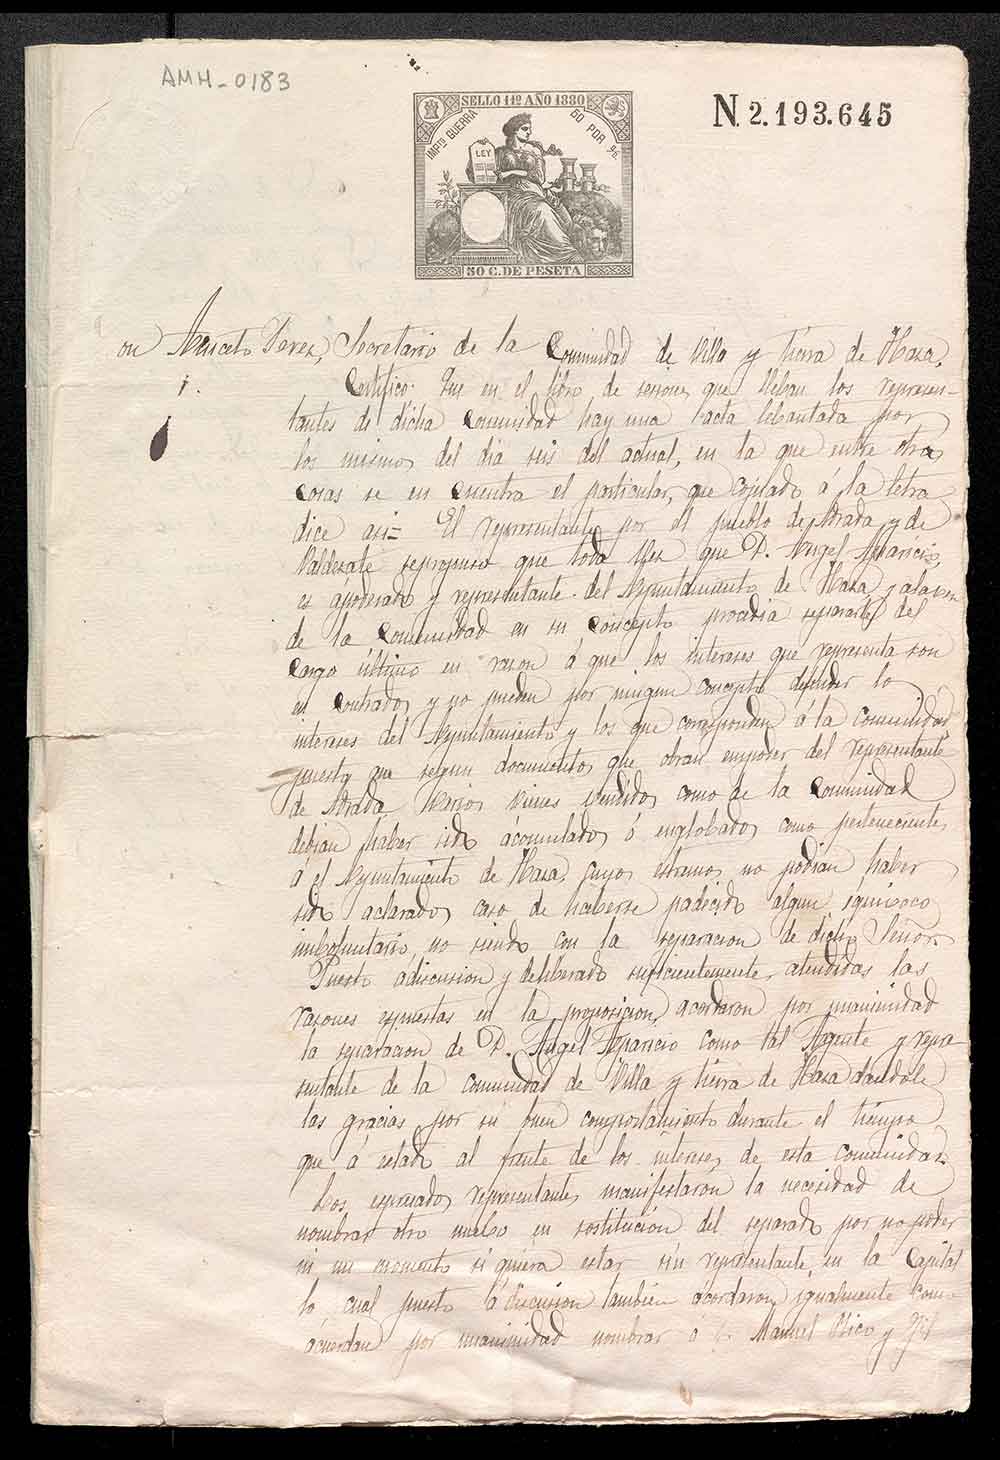 AMH-0183
SELLO 11º AÑO 1880
IMPTO GUERRA
50 POR %
N. 2.193.645
LEY
50 C. DE PESETA
on Aniceto Perez, Secretario de la Comunidad de Villa y tierra de Haza,
1. Certifico: Que en el libro de sesiones que lleban los represen-
tantes de dicha Comunidad hay una acta lebantada por
los mismos del dia seis del actual, en la que entre otras
cosas se en cuentra el particular, que copiado á la letra
dice asi= El representante por el pueblo de Adrada y de
Valdezate se propuso que toda vez que D. Angel Aparicio,
es apoderado y representante del Ayuntamiento de Haza y ala vez
de la Comunidad en su concepto procedia separarle del
cargo último en razon á que los intereses que representa son
en contrados y no pueden por ningun concepto defender los
intereses del Ayuntamiento y los que corresponden á la comunidad
puesto que segun documentos que obran empoder del representante
de Adrada varios vienes vendidos como de la Comunidad
debian haber sido acomulados ó englobados como pertenecientes
á el Ayuntamiento de Haza, cuyos estremos no podian haber
sido aclarados caso de haberse padecido algun iquiboco
imboluntario, no siendo con la separacion de dicho Señor.
Puesto a discusion y deliberado suficientemente, atendidas las
razones espuestas en la proposicion, acordaron por unanimidad
la separacion de D. Angel Aparicio como tal Agente y repre
sentante de la comunidad de Villa y tierra de Haza dandole
las gracias por su buen comportamiento durante el tiempo
que á estado al frente de los intereses de esta comunidad.
Los espresados representantes manifestaron la necesidad de
nombrar otro nuebo en sostitucion del separado por no poder
ni un momento si quiera estar sin representante en la Capital
lo cual puesto á discusion tambien acordaron igualmente como
acuerdan por unanimidad nombrar á D. Manuel Rico y Gil